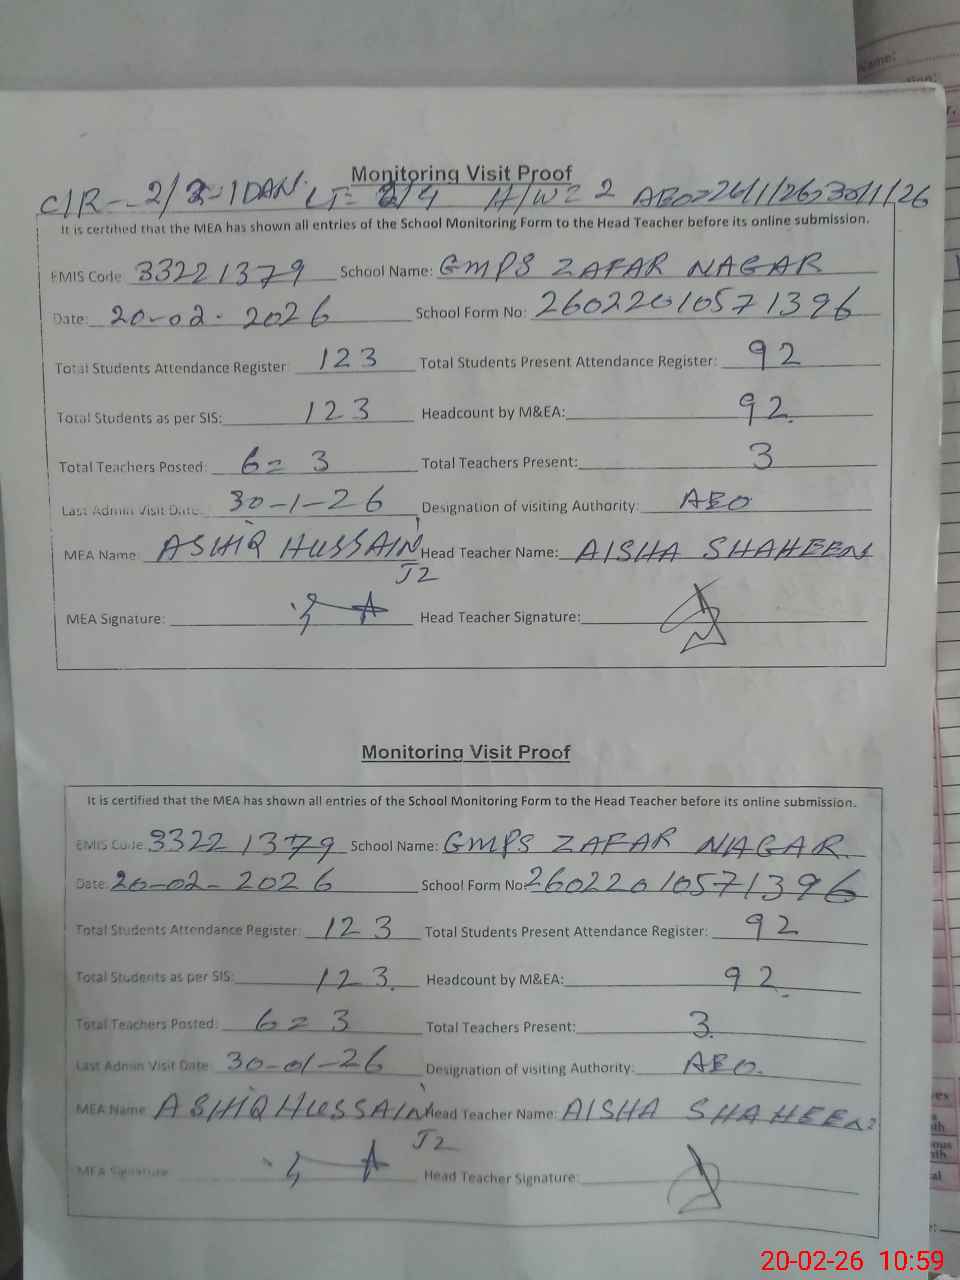 Monitoring Visit Proof
C/R-- 2/ -1 DAN. LT= 2/4 H/W= 2 AEO=26/1/26, 30/1/26
It is certified that the MEA has shown all entries of the School Monitoring Form to the Head Teacher before its online submission.
EMIS Code 33221379 School Name: GMPS ZAFAR NAGAR
Date: 20-02-2026 School Form No: 26022010571396
Total Students Attendance Register: 123 Total Students Present Attendance Register: 92
Total Students as per SIS: 123 Headcount by M&EA: 92.
Total Teachers Posted: 6= 3 Total Teachers Present: 3
Last Admin Visit Date: 30-1-26 Designation of visiting Authority: AEO
MEA Name: ASHIQ HUSSAIN Head Teacher Name: AISHA SHAHEEN
J2
MEA Signature: Head Teacher Signature:
Monitoring Visit Proof
It is certified that the MEA has shown all entries of the School Monitoring Form to the Head Teacher before its online submission.
EMIS Code: 33221379 School Name: GMPS ZAFAR NAGAR
Date: 20-02-2026 School Form No 26022010571396
Total Students Attendance Register: 123 Total Students Present Attendance Register: 92
Total Students as per SIS: 123. Headcount by M&EA: 92.
Total Teachers Posted: 6= 3 Total Teachers Present: 3.
Last Admin Visit Date: 30-01-26 Designation of visiting Authority: AEO.
MEA Name: ASHIQ HUSSAIN Head Teacher Name: AISHA SHAHEEN
J2
MEA Signature: Head Teacher Signature:
20-02-26 10:59